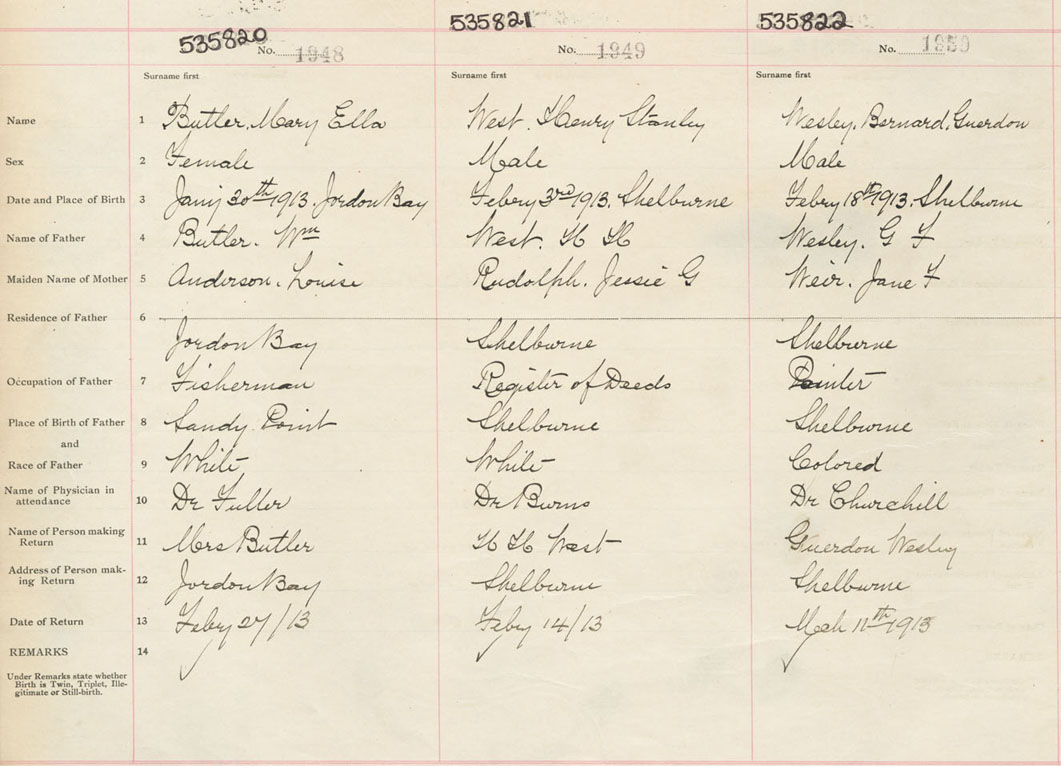 535820 535821 535822
No. 1948 No. 1949 No. 1950
Surname first Surname first Surname first
Name 1 Butler, Mary Ella West, Henry Stanley Wesley, Bernard, Guerdon
Sex 2 Female Male Male
Date and Place of Birth 3 Jany 30th 1913. Jordon Bay Febry 3rd 1913. Shelburne Febry 18th 1913. Shelburne
Name of Father 4 Butler. Wm West. H H Wesley. G F
Maiden Name of Mother 5 Anderson. Louise Rudolph. Jessie G Weir. Jane F
Residence of Father 6
Jordon Bay Shelburne Shelburne
Occupation of Father 7 Fisherman Register of Deeds Painter
Place of Birth of Father 8 Sandy Point Shelburne Shelburne
and
Race of Father 9 White White Colored
Name of Physician in
attendance 10 Dr Fuller Dr Burns Dr Churchill
Name of Person making
Return 11 Mrs Butler H H West Guerdon Wesley
Address of Person mak-
ing Return 12 Jordon Bay Shelburne Shelburne
Date of Return 13 Feby 27/13 Feby 14/13 Mch 11th 1913
REMARKS 14
Under Remarks state whether
Birth is Twin, Triplet, Ille-
gitimate or Still-birth.